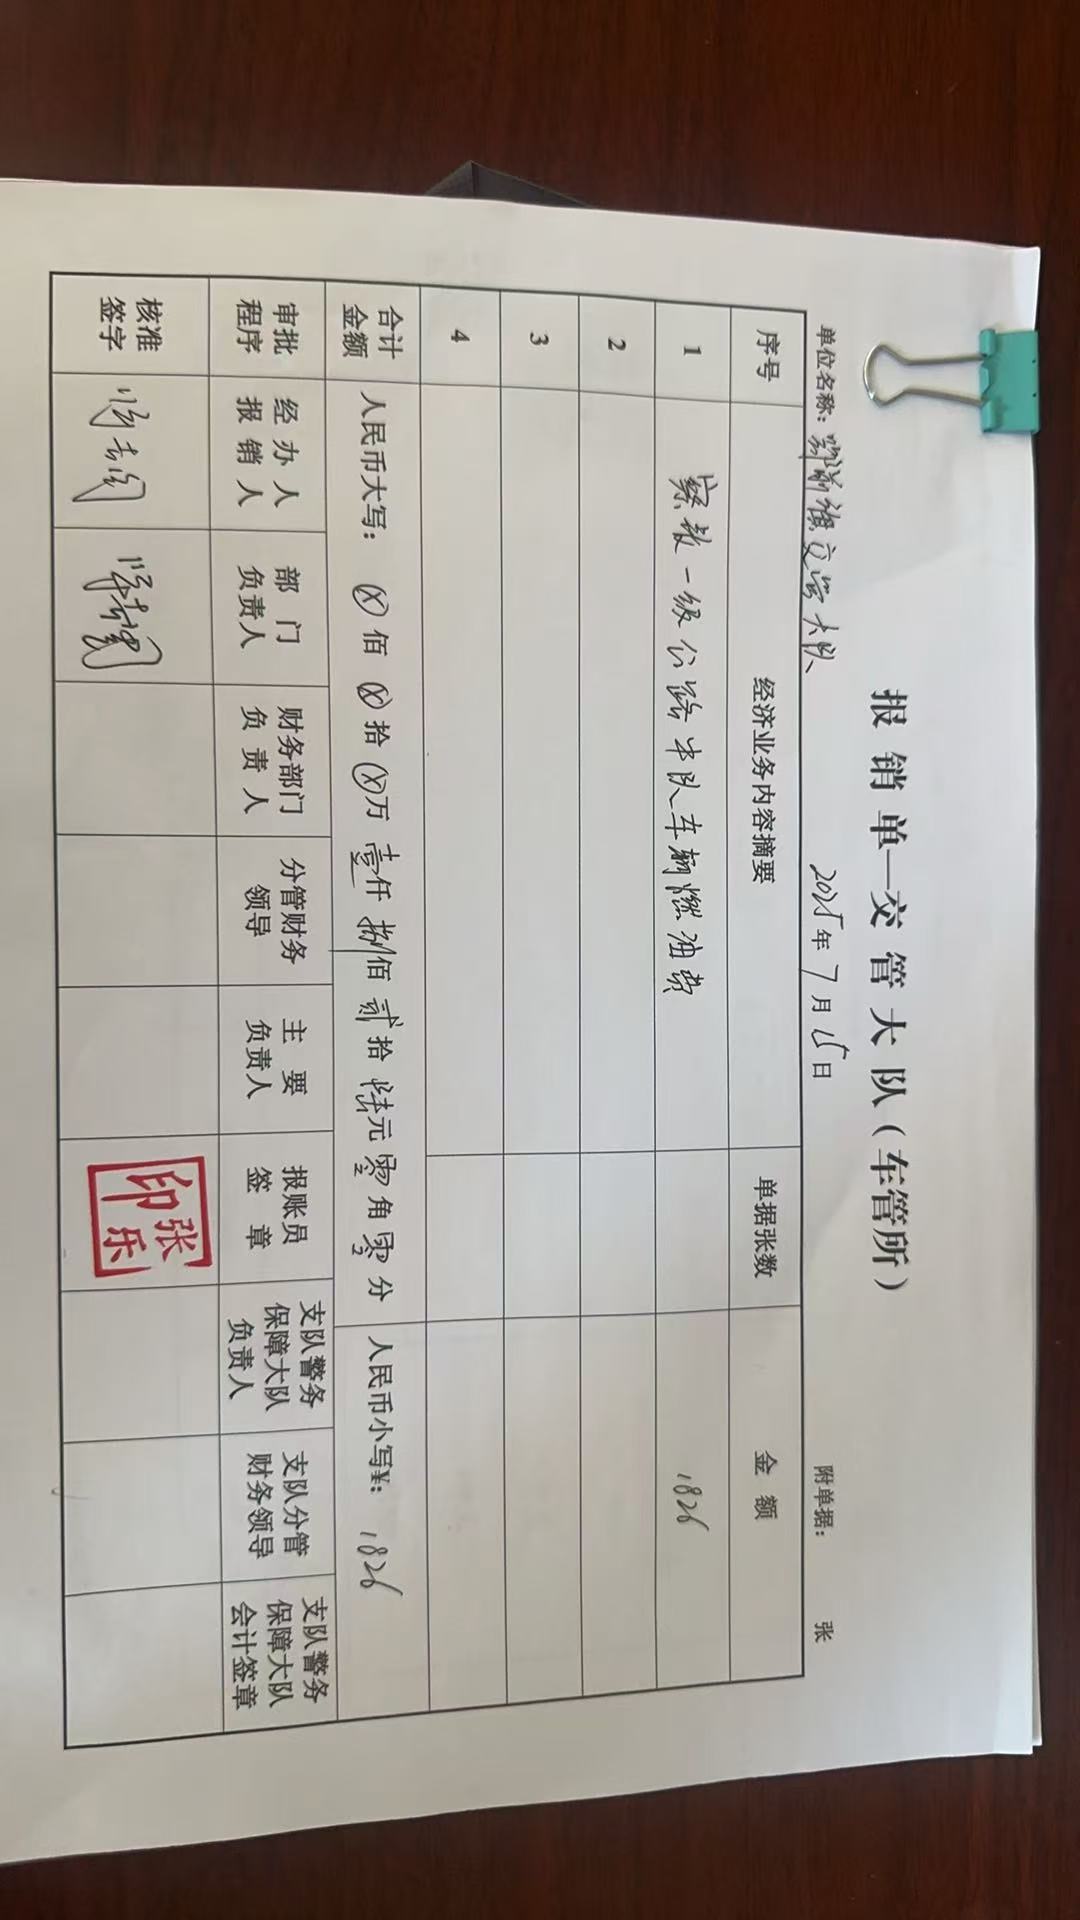 报销单—交管大队（车管所）
单位名称：鄂前旗交管大队 2025年7月15日 附单据： 张
序号 经济业务内容摘要 单据张数 金额
1 察敖一级公路中队车辆燃油费 1826
2
3
4
合计金额 人民币大写：ⓧ佰ⓧ拾ⓧ万壹仟捌佰贰拾陆元零角零分 人民币小写¥：1826
审批程序 经办人报销人 部门负责人 财务部门负责人 分管财务领导 主要负责人 报账员签章 支队警务保障大队负责人 支队分管财务领导 支队警务保障大队会计签章
核准签字 张乐印